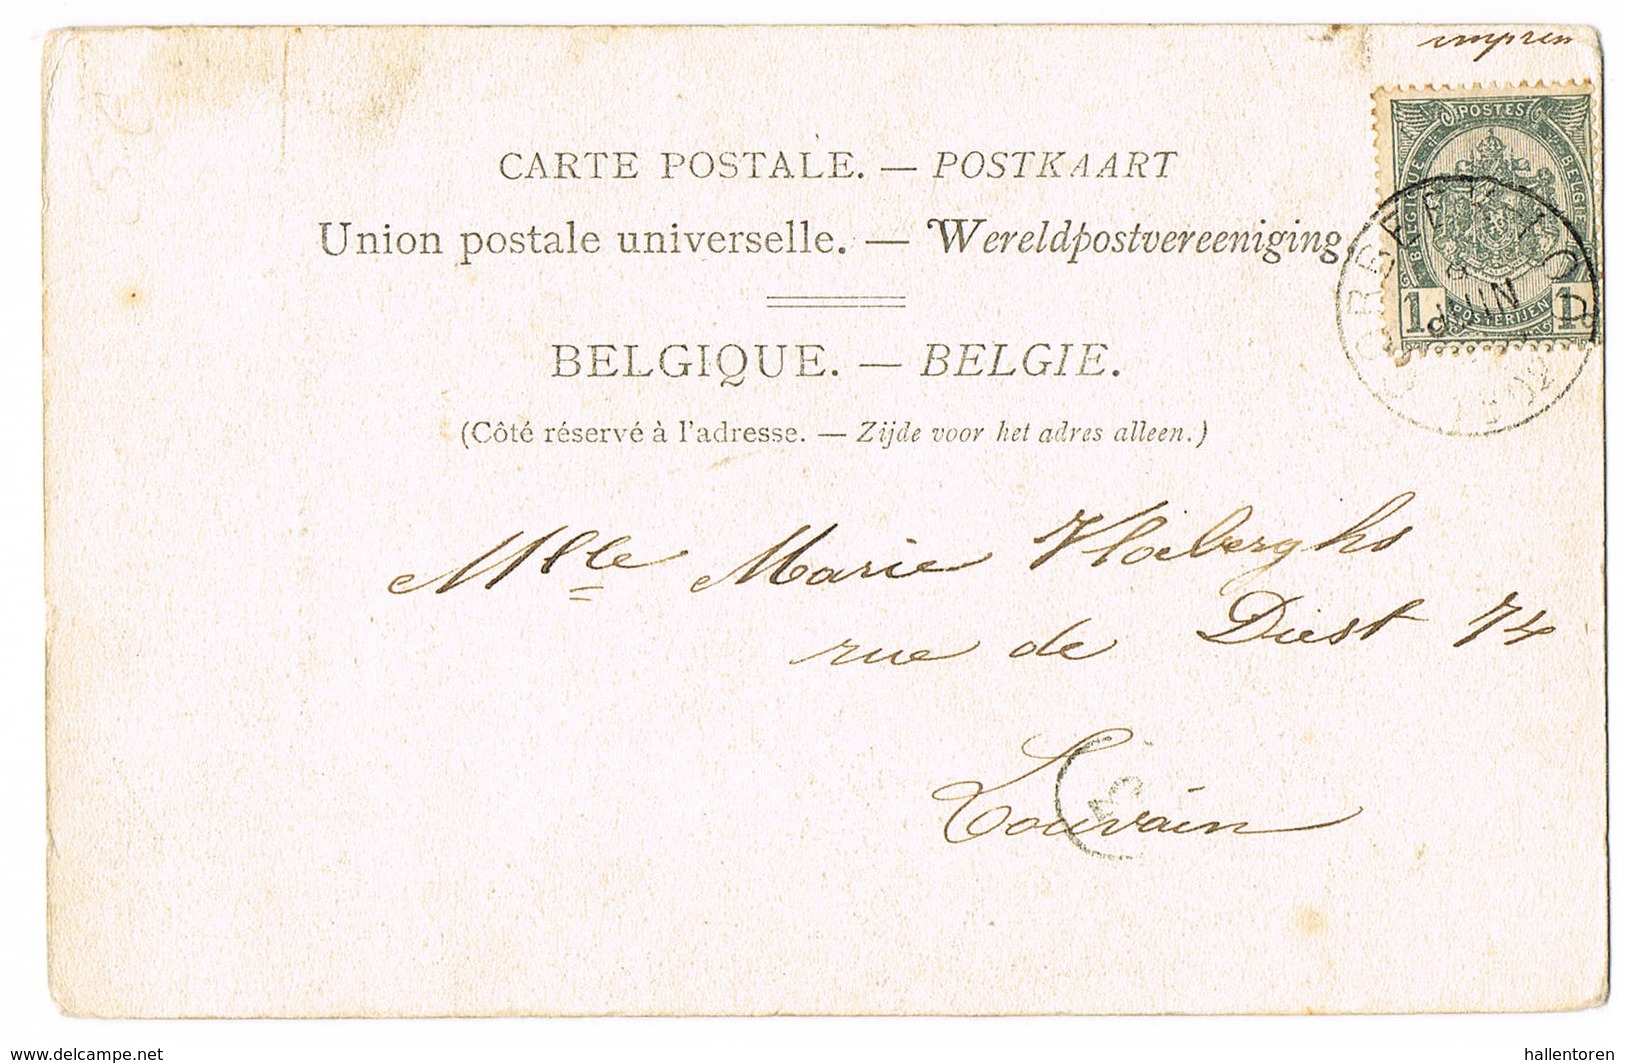 impren
POSTES
BELGIQUE
BELGIE
1
POSTERIJEN
1
CORBEEK-LOO
JUIN
1902
CARTE POSTALE. — POSTKAART
Union postale universelle. — Wereldpostvereeniging
BELGIQUE. — BELGIE.
(Côté réservé à l'adresse. — Zijde voor het adres alleen.)
Mlle Marie Vloeberghs
rue de Diest 74
Louvain
www.delcampe.net
hallentoren